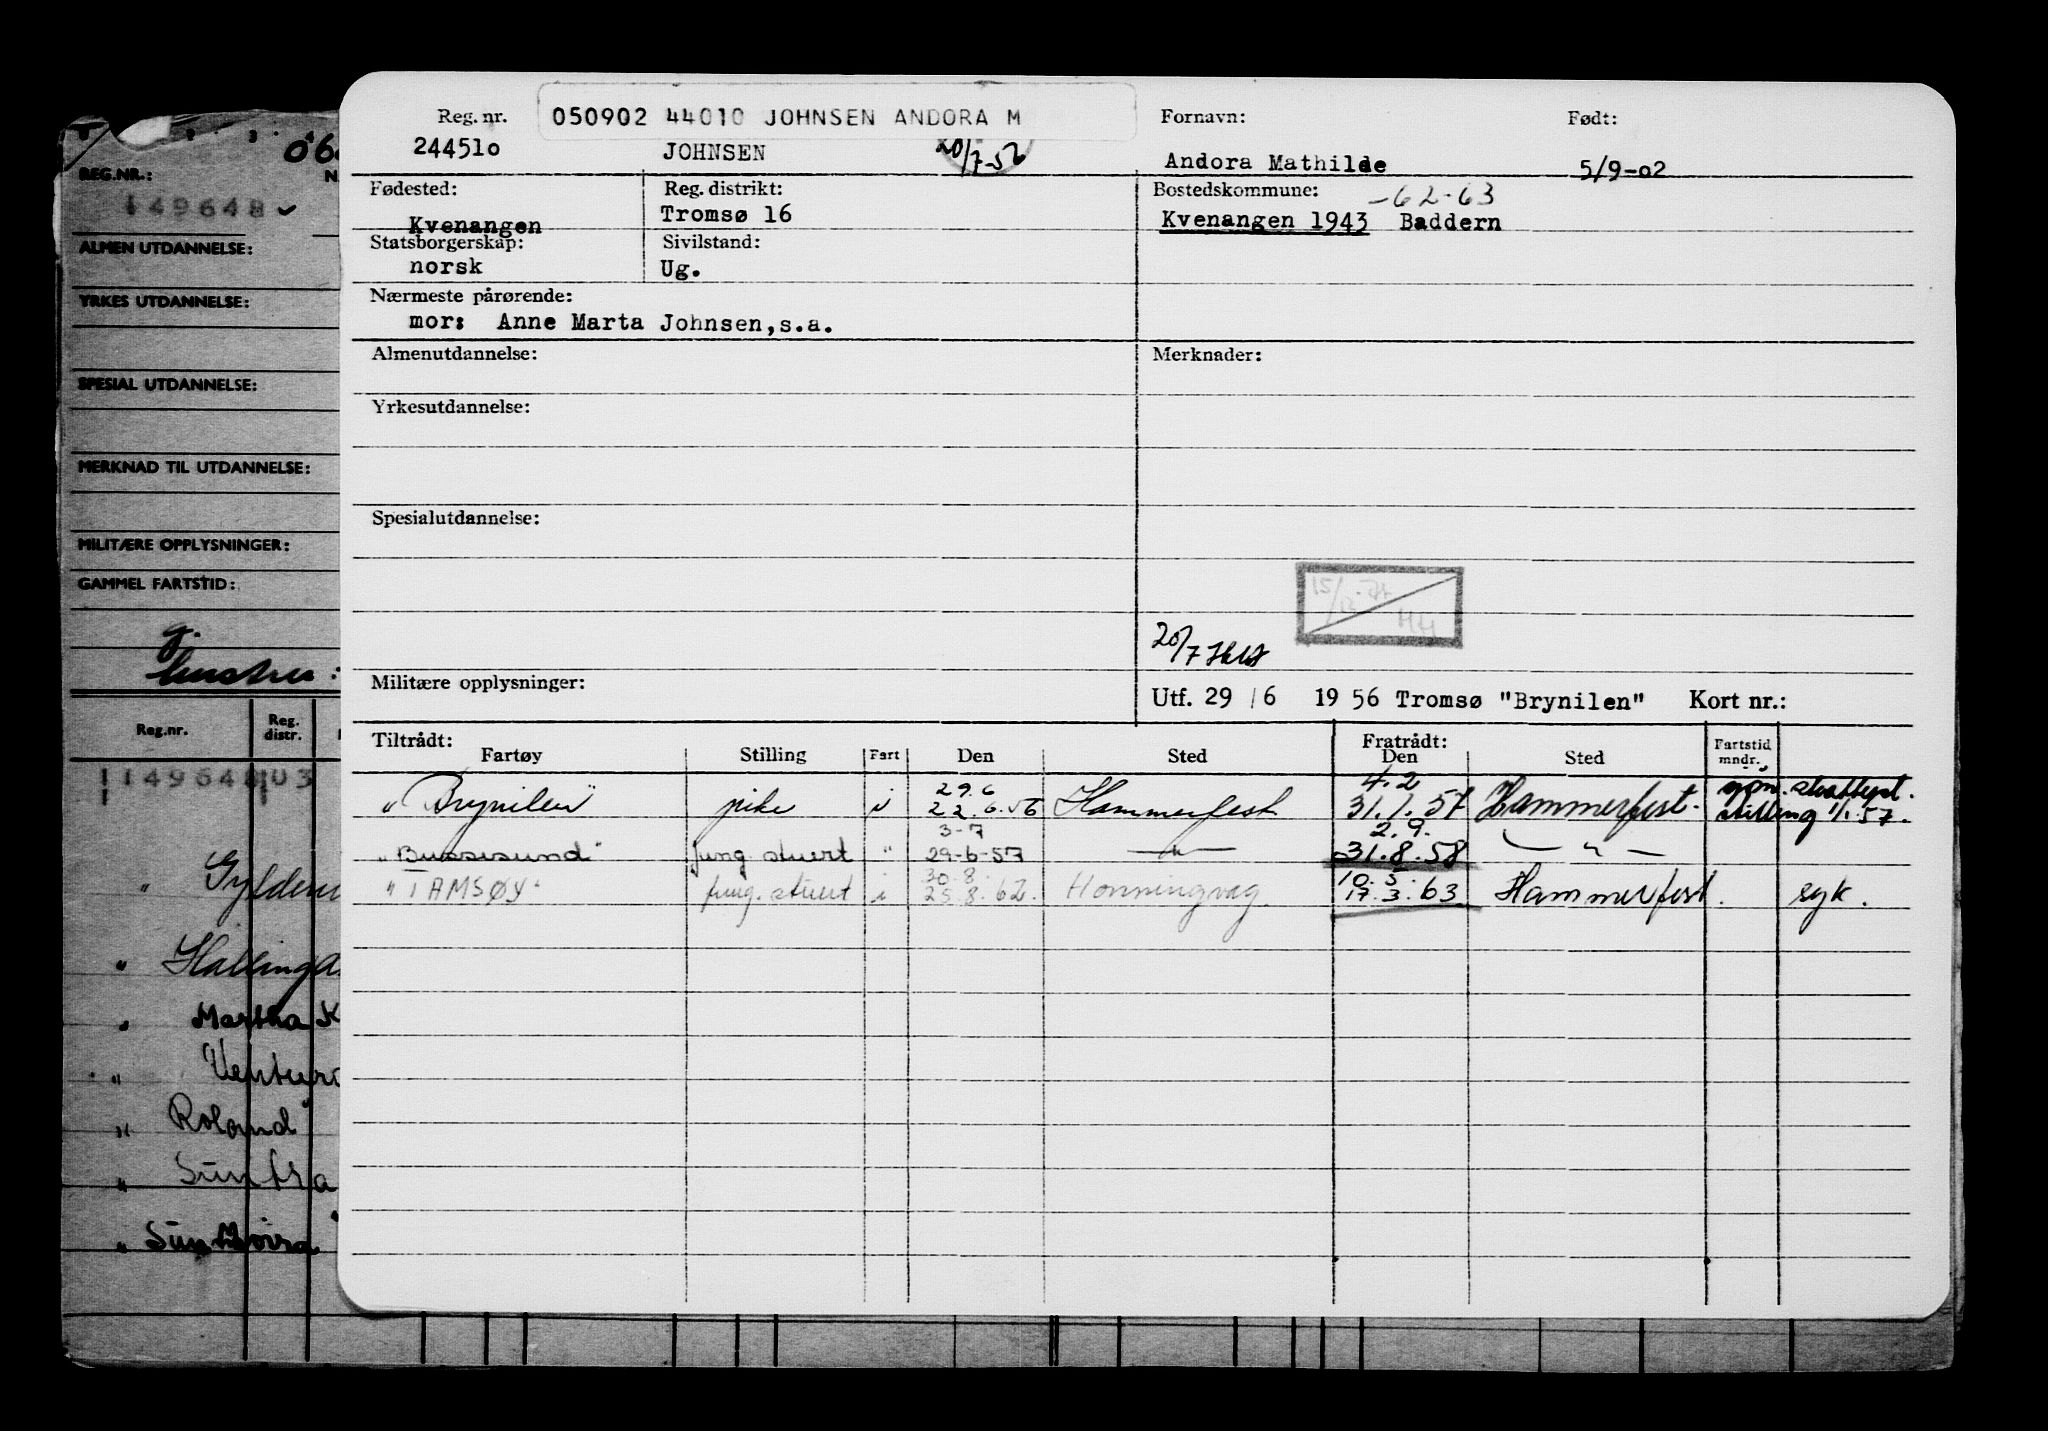 Reg. nr. 050902 44010 JOHNSEN ANDORA M Fornavn: Født:
244510 JOHNSEN 20/7-56 Andora Mathilde 5/9-02
Fødested: Reg. distrikt: Bostedskommune: -62-63
Kvenangen Tromsø 16 Kvenangen 1943 Baddern
Statsborgerskap: Sivilstand:
norsk Ug.
Nærmeste pårørende:
mor: Anne Marta Johnsen,s.a.
Almenutdannelse: Merknader:
Yrkesutdannelse:
Spesialutdannelse:
15/12-
20/7
Militære opplysninger: Utf. 29/6 1956 Tromsø "Brynilen" Kort nr.:
Tiltrådt: Fratrådt: Fartstid
Fartøy Stilling Fart Den Sted Den Sted mndr.
29.6 4.2
"Brynilen" pike i 22.6.56 Hammerfest 31.1.57 Hammerfest. stilling 1/1.57.
3-7 2.9.
"Bussesund" jung stuert " 29-6-57 — " — 31.8.58 — " —
30.8. 10.5.
"TAMSØY" jung. stuert i 25.8.62. Honningvåg. 17.3.63 Hammerfest. syk.
REG.NR.:
149648
ALMEN UTDANNELSE:
YRKES UTDANNELSE:
SPESIAL UTDANNELSE:
MERKNAD TIL UTDANNELSE:
MILITÆRE OPPLYSNINGER:
GAMMEL FARTSTID:
Reg.nr. Reg. distr.
149648 03
"
" 
" Martha K
"
" Roland
"
"